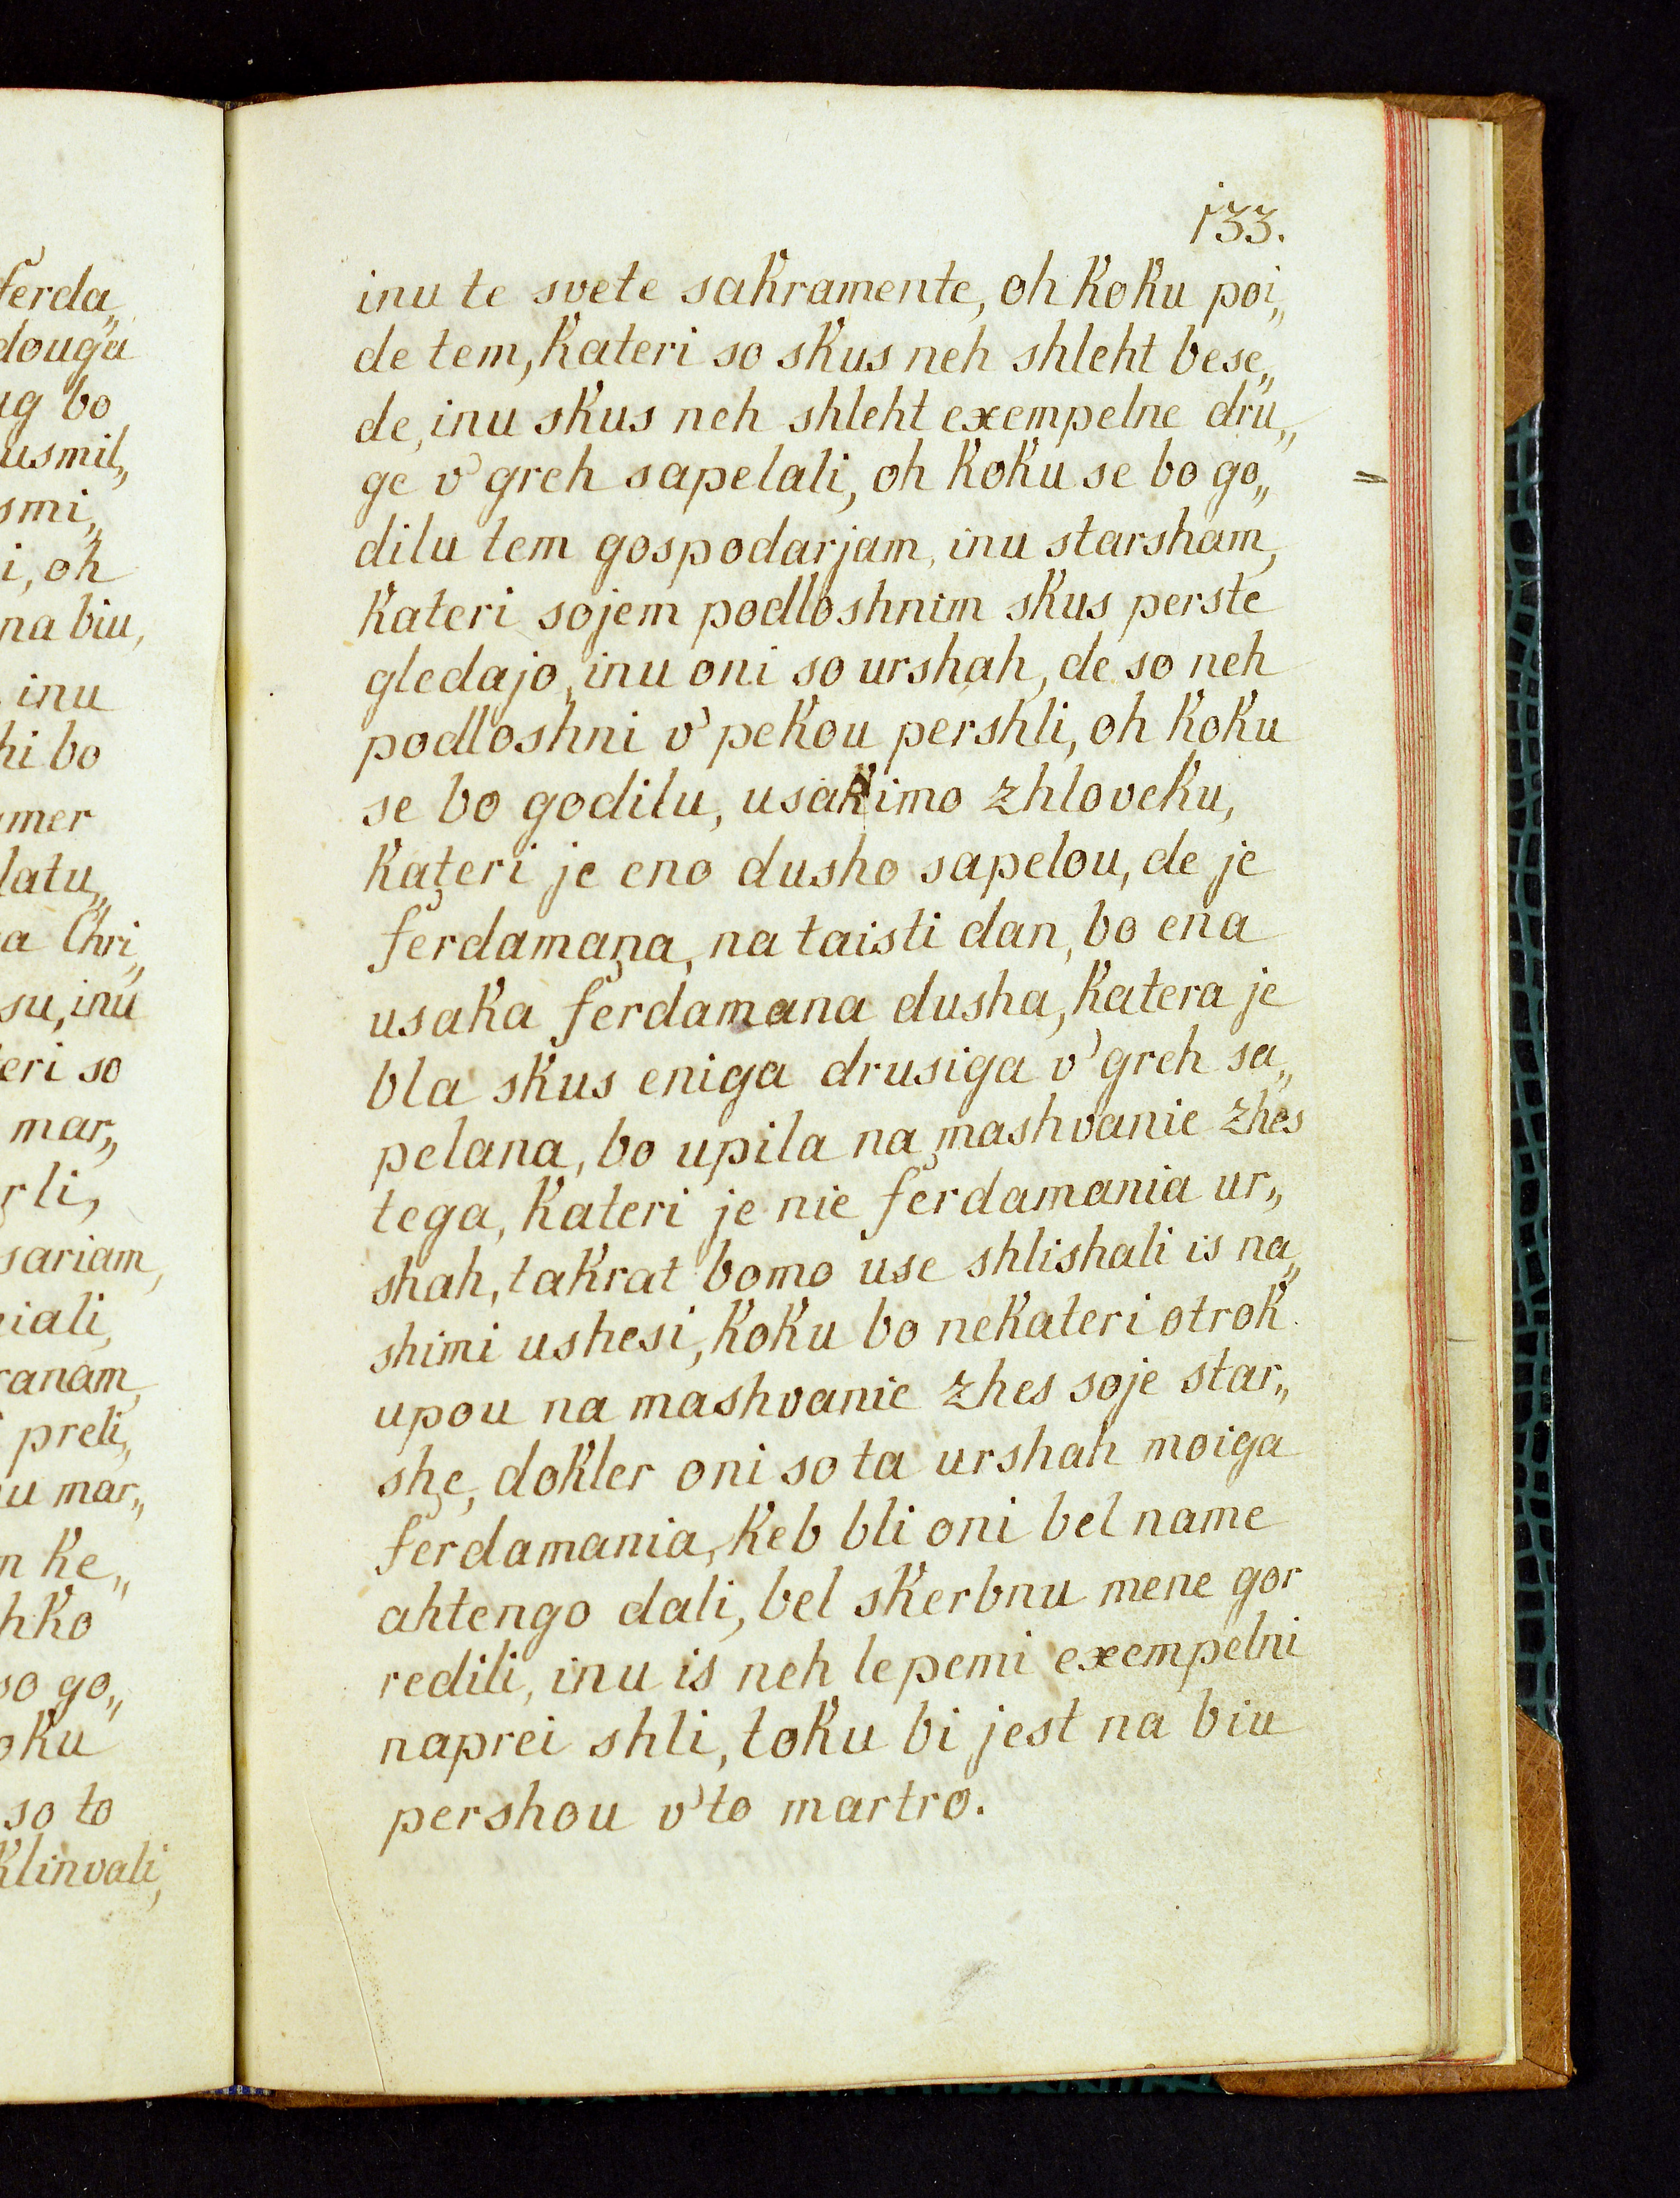 ferda„
douga
ug bo
usmil„
smi„
i, oh
na biu,
inu
hi bo
mer
latu„
a Chri„
su, inu
eri so
mar„
rli,
sariam,
iali,
ranam,
preli„
u mar„
n ke„
hko
so go„
oku
so to
klinvali,
133.
inu te svete sakramente, oh koku poi„
de tem, kateri so skus neh shleht bese„
de, inu skus neh shleht exempelne dru„
ge v' greh sapelali, oh koku se bo go„
dilu tem gospodarjam, inu starsham,
kateri sojem podloshnim skus perste
gledajo, inu oni so urshah, de so neh
podloshni v' pekou pershli, oh koku
se bo godilu, usakimo zhloveku,
kateri je eno dusho sapelou, de je
ferdamana, na taisti dan, bo ena
usaka ferdamana dusha, katera je
bla skus eniga drusiga v' greh sa„
pelana, bo upila na mashvanie zhes
tega, kateri je nie ferdamania ur„
shah, takrat bomo use shlishali is na„
shimi ushesi, koku bo nekateri otrok
upou na mashvanie zhes soje star„
she, dokler oni so ta urshah moiga
ferdamania, keb bli oni bel name
ahtengo dali, bel skerbnu mene gor
redili, inu is neh lepemi exempelni
naprei shli, toku bi jest na biu
pershou v' to martro.